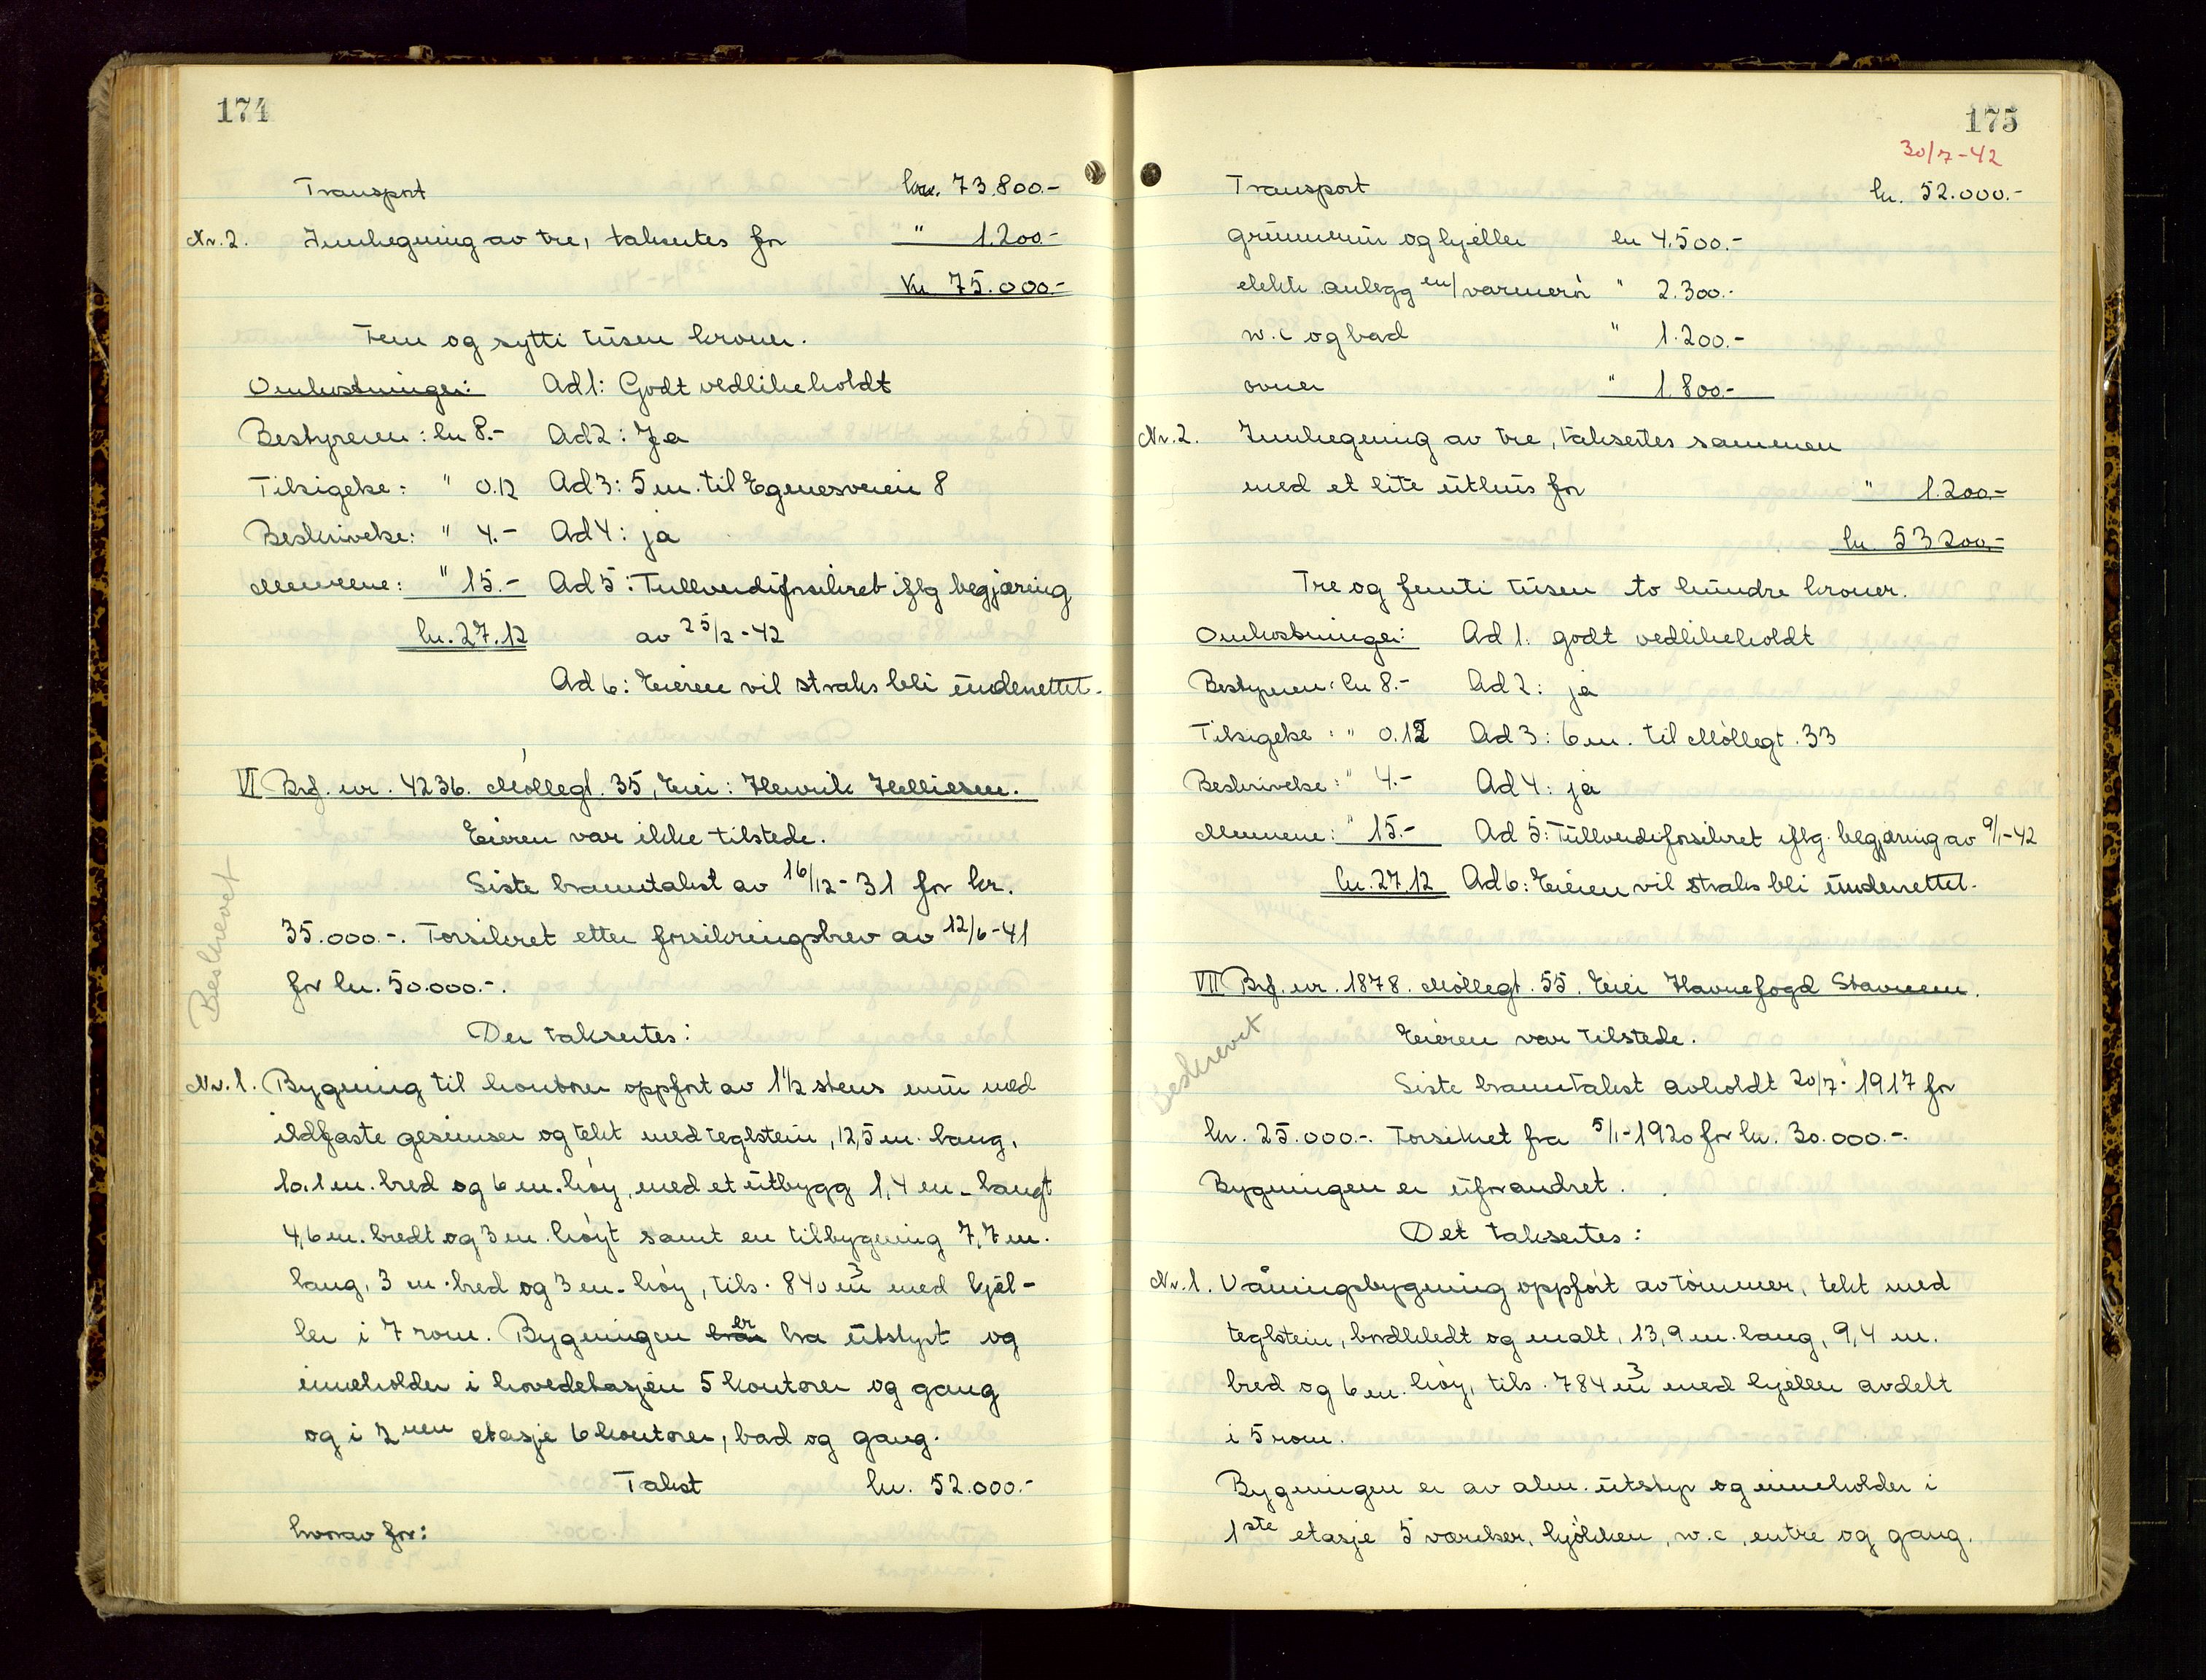 174
Transport kr. 73.800.-
Nr. 2. Innhegning av tre, takseres for " 1.200.-
Kr. 75.000.-
Fem og sytti tusen kroner.
Omkostninger: Ad 1: Godt vedlikeholdt
Bestyreren: kr 8.- Ad 2: Ja
Tilsigelse: " 0.12 Ad 3: 5 m. til Egenesveien 8
Beskrivelse: " 4.- Ad 4: ja
Mennene: " 15.- Ad 5: Fullverdiforsikret iflg begjæring
kr. 27.12 av 25/2-42
Ad 6: Eieren vil straks bli underrettet.
VI Brf. nr. 4236. Møllegt. 35, Eier: Henrik Helliesen.
Eieren var ikke tilstede.
Siste branntakst av 16/12-31 for kr.
35.000.-. Forsikret etter forsikringsbrev av 12/6-41
for kr. 50.000.-.
Beskrevet
Der takseres:
Nr. 1. Bygning til kontorer oppført av 1½ stens mur med
ildfaste gesimser og tekt med teglstein, 12,5 m. lang,
10.1 m. bred og 6 m. høy, med et utbygg 1,4 m. langt
4,6 m. bredt og 3 m. høyt samt en tilbygning 7,7 m.
lang, 3 m. bred og 3 m. høy, tils. 840 m3 med kjel-
ler i 7 rom. Bygningen er bra utstyrt og
inneholder i hovedetasjen 5 kontorer og gang
og i 2nen etasje 6 kontorer, bad og gang.
Takst kr. 52.000.-
hvorav for:
175
30/7-42
Transport kr. 52.000.-
grunnmur og kjeller kr 4.500.-
elektr. anlegg m/varmerør " 2.300.-
w.c og bad " 1.200.-
ovner " 1.800.-
Nr. 2. Innhegning av tre, takseres sammen
med et lite uthus for " 1.200.-
kr. 53.200.-
Tre og femti tusen to hundre kroner.
Omkostninger: Ad 1: godt vedlikeholdt
Bestyreren: kr 8.- Ad 2: ja
Tilsigelse: " 0.12 Ad 3: 6 m. til Møllegt. 33
Beskrivelse: " 4.- Ad 4: ja
Mennene: " 15.- Ad 5: Fullverdiforsikret iflg. begjæring av 9/1-42
kr. 27.12 Ad 6: Eieren vil straks bli underrettet.
VII Brf. nr. 1878. Møllegt. 55. Eier Havnefogd Stavnem.
Beskrevet
Eieren var tilstede.
Siste branntakst avholdt 20/7-1917 for
kr. 25.000.-. Forsikret fra 5/1-1920 for kr. 30.000.-.
Bygningen er uforandret.
Det takseres:
Nr. 1. Våningsbygning oppført av tømmer, tekt med
teglstein, bordkledt og malt, 13,9 m. lang, 9,4 m.
bred og 6 m. høy, tils. 784 m3 med kjeller avdelt
i 5 rom.
Bygningen er av alm. utstyr og inneholder i
1ste etasje 5 værelser, kjøkken, w.c, entre og gang.